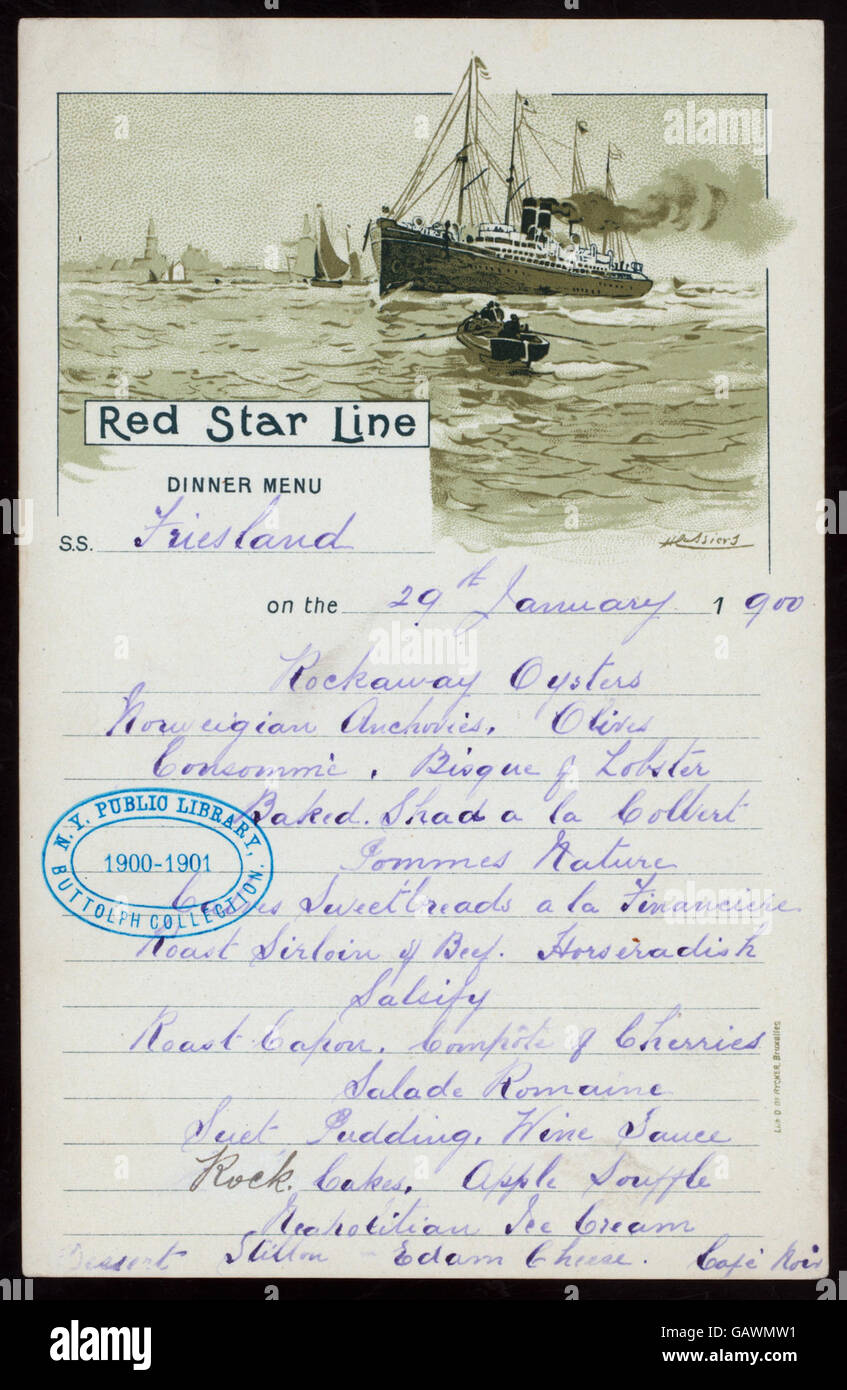 Red Star Line
DINNER MENU
S.S. Friesland
on the 29th January 1900
Rockaway Oysters
Norweigian Anchovies. Olives
Consommé. Bisque of Lobster
Baked. Shad a la Colbert
Pommes Nature
Calves Sweetbreads a la Financiere
Roast Sirloin of Beef. Horseradish
Salsify
Roast Capon. Compôte of Cherries
Salade Romaine
Suet Pudding. Wine Sauce
Rock. Cakes. Apple Souffle
Neapolitian Ice Cream
Dessert Stilton - Edam Cheese. Café Noir
N.Y. PUBLIC LIBRARY,
1900-1901
BUTTOLPH COLLECTION.
Lith. O. DE RYCKER, Bruxelles
H. Cassiers
a alamy stock photo
alamy
Image ID: GAWMW1
www.alamy.com